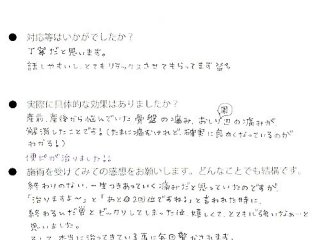 ● 対応等はいかがでしたか？
丁寧だと思います。
話しやすいし、とてもリラックスさせてもらってます
● 実際に具体的な効果はありましたか？
産前、産後から悩んでいた骨盤の痛み、おしり周の痛みが
解消したことです！（たまに痛むけれど、確実に良くなっているのが
わかる！）
便ピが治りました！！
● 施術を受けてみての感想をお願いします。どんなことでも結構です。
終わりのない、一生つきあっていく痛みだと思っていたのですが
「治りますよ〜」と「あと 回位ですね」と言われた時に、
終わるんだ と ビックリしてしまったのは 嬉しくて、とても 強いだぁ〜と
思いました。
そして、本当に治ってきている事に毎回驚かされます。